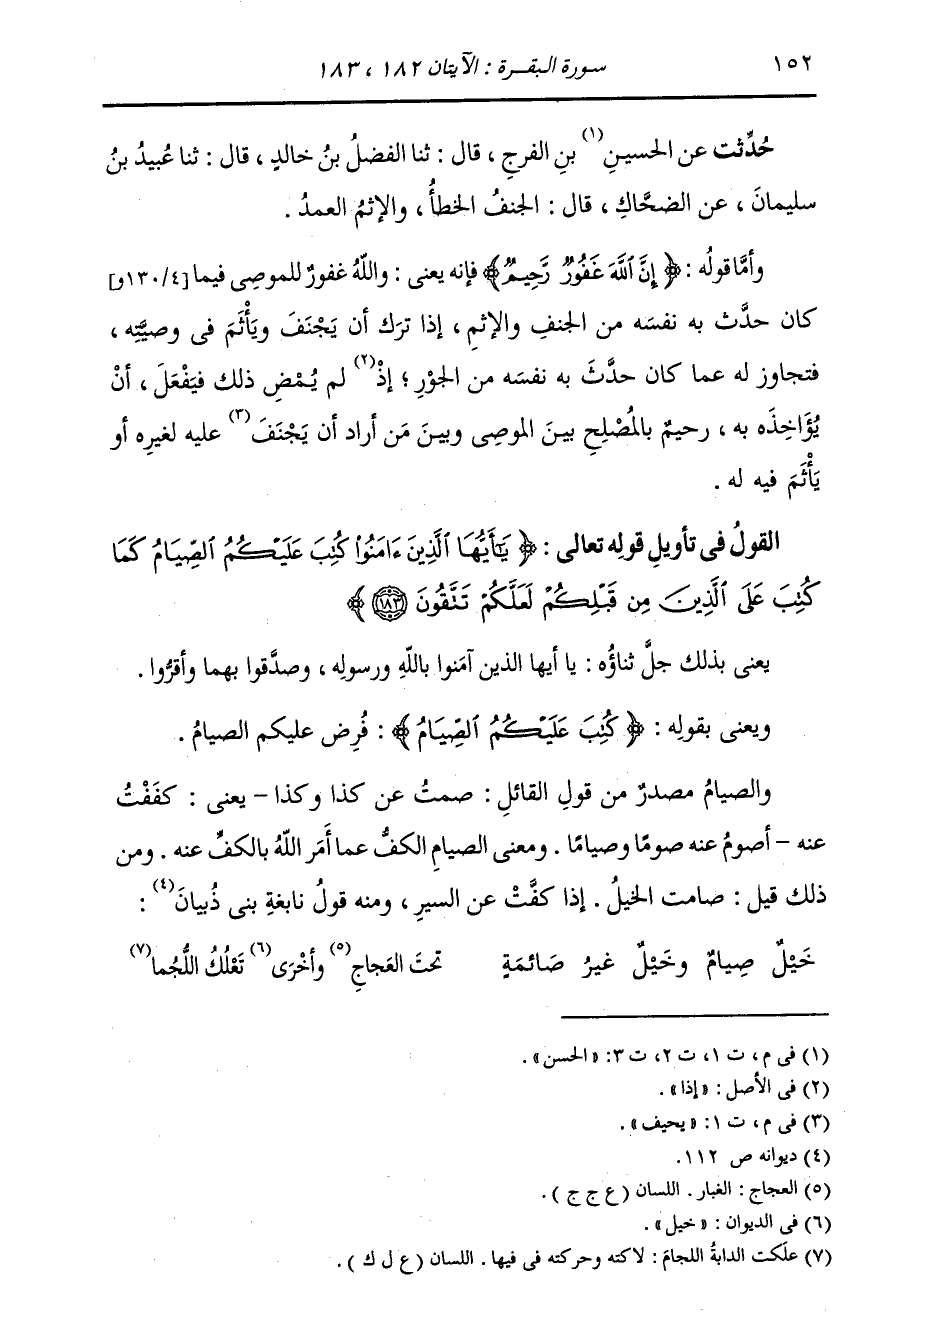 ١٥٢ سورة البقرة : الآيتان ١٨٢ ، ١٨٣
حُدِّثت عن الحسينِ(١) بنِ الفرجِ ، قال : ثنا الفضلُ بنُ خالدٍ ، قال : ثنا عُبيدُ بنُ
سليمانَ ، عن الضحَّاكِ ، قال : الجنفُ الخطأُ ، والإثمُ العمدُ .
وأمَّا قولُه : ﴿ إِنَّ ٱللَّهَ غَفُورٌ رَّحِيمٌ ﴾ فإنه يعنى : واللَّهُ غفورٌ للموصِى فيما [٤/١٣٠و]
كان حدَّث به نفسَه من الجنفِ والإثمِ ، إذا ترَك أن يَجْنَفَ ويَأْثَمَ فى وصيَّتِه ،
فتجاوز له عما كان حدَّثَ به نفسَه من الجَوْرِ ؛ إذْ(٢) لم يُمْضِ ذلك فيَفْعَلَ ، أنْ
يُؤَاخِذَه به ، رحيمٌ بالمُصْلِحِ بينَ الموصِى وبينَ مَن أراد أن يَجْنَفَ(٣) عليه لغيرِه أو
يَأْثَمَ فيه له .
القولُ فى تأويلِ قولِه تعالى : ﴿ يَٰٓأَيُّهَا ٱلَّذِينَ ءَامَنُوا۟ كُتِبَ عَلَيْكُمُ ٱلصِّيَامُ كَمَا
كُتِبَ عَلَى ٱلَّذِينَ مِن قَبْلِكُمْ لَعَلَّكُمْ تَتَّقُونَ ١٨٣ ﴾
يعنى بذلك جلَّ ثناؤُه : يا أيها الذين آمَنوا باللَّهِ ورسولِه ، وصدَّقوا بهما وأقرُّوا .
ويعنى بقولِه : ﴿ كُتِبَ عَلَيْكُمُ ٱلصِّيَامُ ﴾ : فُرِض عليكم الصيامُ .
والصيامُ مصدرٌ من قولِ القائلِ : صمتُ عن كذا وكذا – يعنى : كفَفْتُ
عنه – أصومُ عنه صومًا وصيامًا . ومعنى الصيامِ الكفُّ عما أَمَر اللَّهُ بالكفِّ عنه . ومن
ذلك قيل : صامت الخيلُ . إذا كفَّتْ عن السيرِ ، ومنه قولُ نابغةِ بنى ذُبيانَ(٤) :
خَيْلٌ صِيامٌ وخَيْلٌ غيرُ صَائمَةٍ تحتَ العَجاجِ(٥) وأخْرَى(٦) تَعْلُكُ اللُّجُما(٧)
(١) فى م، ت ١، ت ٢، ت ٣: «الحسن» .
(٢) فى الأصل : «إذا» .
(٣) فى م، ت ١: «يحيف» .
(٤) ديوانه ص ١١٢.
(٥) العجاج : الغبار . اللسان (ع ج ج) .
(٦) فى الديوان : «خيل» .
(٧) علَكت الدابةُ اللجامَ : لاكته وحركته فى فيها . اللسان (ع ل ك) .